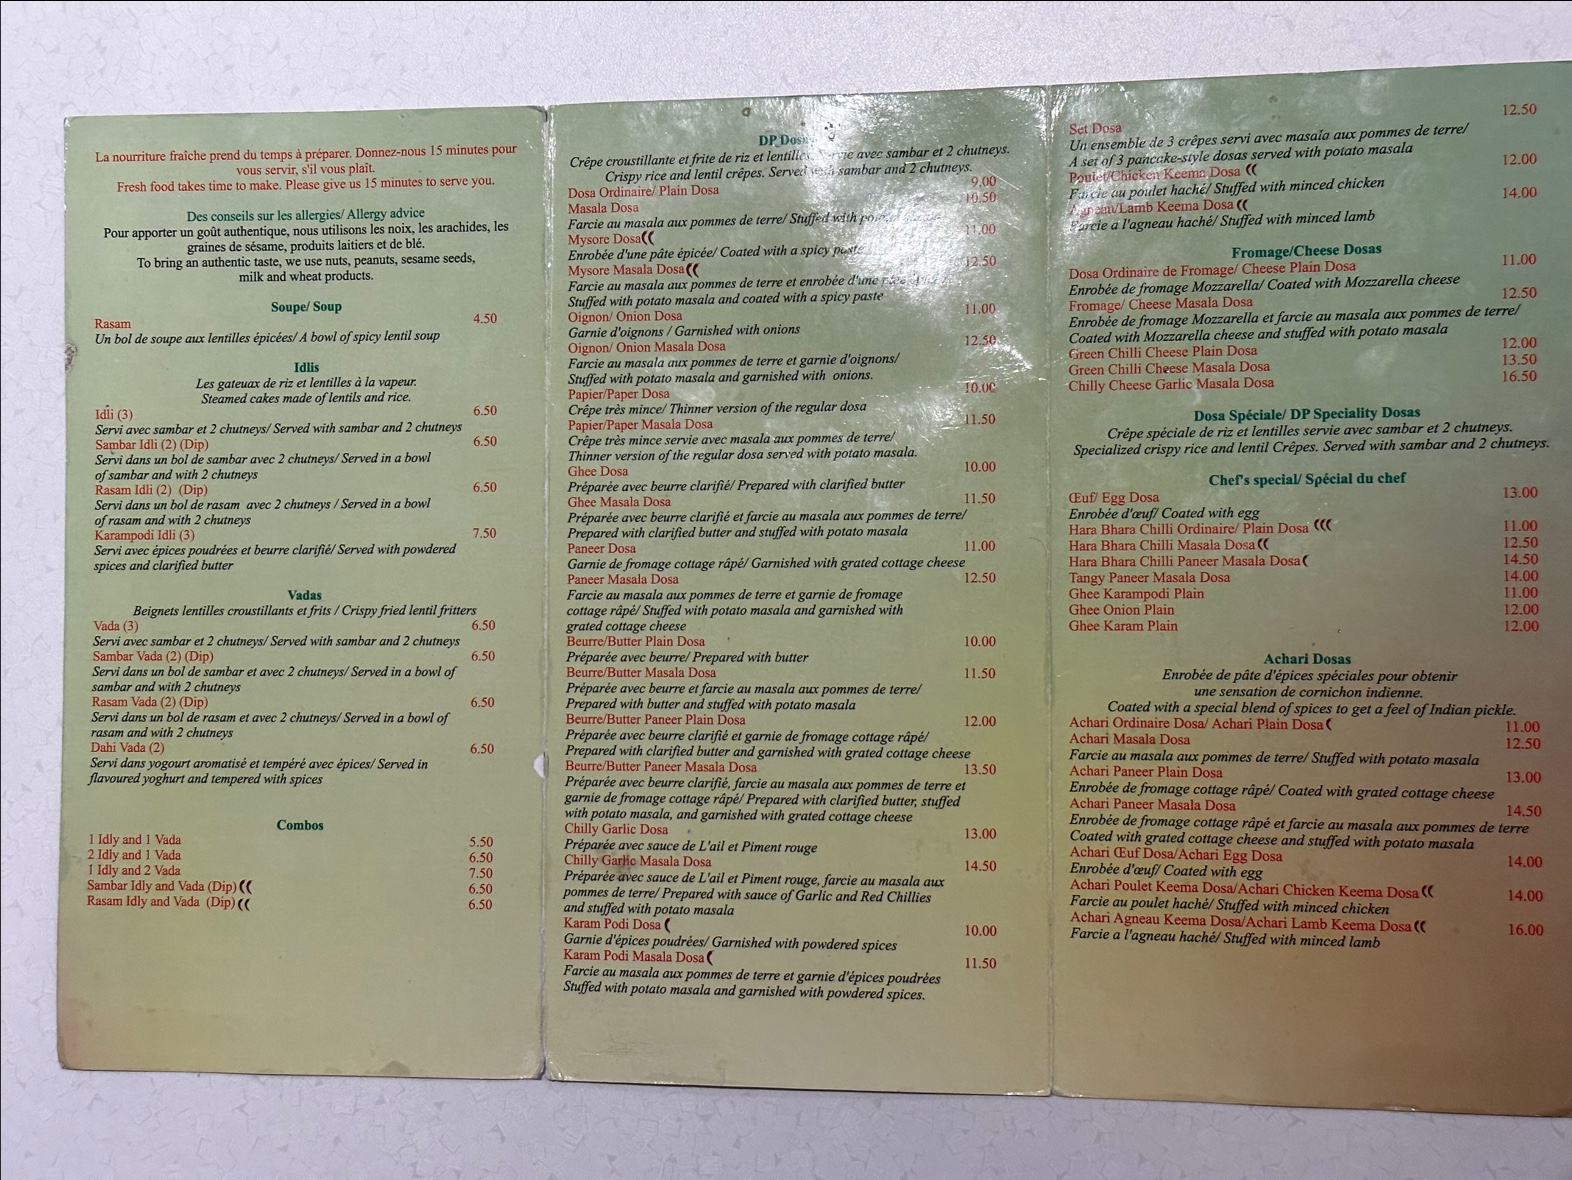 La nourriture fraîche prend du temps à préparer. Donnez-nous 15 minutes pour
vous servir, s'il vous plaît.
Fresh food takes time to make. Please give us 15 minutes to serve you.
Des conseils sur les allergies/ Allergy advice
Pour apporter un goût authentique, nous utilisons les noix, les arachides, les
graines de sésame, produits laitiers et de blé.
To bring an authentic taste, we use nuts, peanuts, sesame seeds,
milk and wheat products.
Soupe/ Soup
Rasam 4.50
Un bol de soupe aux lentilles épicées/ A bowl of spicy lentil soup
Idlis
Les gateuax de riz et lentilles à la vapeur.
Steamed cakes made of lentils and rice.
Idli (3) 6.50
Servi avec sambar et 2 chutneys/ Served with sambar and 2 chutneys
Sambar Idli (2) (Dip) 6.50
Servi dans un bol de sambar avec 2 chutneys/ Served in a bowl
of sambar and with 2 chutneys
Rasam Idli (2) (Dip) 6.50
Servi dans un bol de rasam avec 2 chutneys/ Served in a bowl
of rasam and with 2 chutneys
Karampodi Idli (3) 7.50
Servi avec épices poudrées et beurre clarifié/ Served with powdered
spices and clarified butter
Vadas
Beignets lentilles croustillants et frits / Crispy fried lentil fritters
Vada (3) 6.50
Servi avec sambar et 2 chutneys/ Served with sambar and 2 chutneys
Sambar Vada (2) (Dip) 6.50
Servi dans un bol de sambar et avec 2 chutneys/ Served in a bowl of
sambar and with 2 chutneys
Rasam Vada (2) (Dip) 6.50
Servi dans un bol de rasam et avec 2 chutneys/ Served in a bowl of
rasam and with 2 chutneys
Dahi Vada (2) 6.50
Servi dans yogourt aromatisé et tempéré avec épices/ Served in
flavoured yoghurt and tempered with spices
Combos
1 Idly and 1 Vada 5.50
2 Idly and 1 Vada 6.50
1 Idly and 2 Vada 7.50
Sambar Idly and Vada (Dip) 6.50
Rasam Idly and Vada (Dip) 6.50
DP Dosas
Crêpe croustillante et frite de riz et lentilles. Servie avec sambar et 2 chutneys.
Crispy rice and lentil crêpes. Served with sambar and 2 chutneys.
Dosa Ordinaire/ Plain Dosa 9.00
Masala Dosa 10.50
Farcie au masala aux pommes de terre/ Stuffed with potato
Mysore Dosa 11.00
Enrobée d'une pâte épicée/ Coated with a spicy paste
Mysore Masala Dosa 12.50
Farcie au masala aux pommes de terre et enrobée d'une
Stuffed with potato masala and coated with a spicy paste
Oignon/ Onion Dosa 11.00
Garnie d'oignons / Garnished with onions
Oignon/ Onion Masala Dosa 12.50
Farcie au masala aux pommes de terre et garnie d'oignons/
Stuffed with potato masala and garnished with onions.
Papier/Paper Dosa 10.00
Crêpe très mince/ Thinner version of the regular dosa
Papier/Paper Masala Dosa 11.50
Crêpe très mince servie avec masala aux pommes de terre/
Thinner version of the regular dosa served with potato masala.
Ghee Dosa 10.00
Préparée avec beurre clarifié/ Prepared with clarified butter
Ghee Masala Dosa 11.50
Préparée avec beurre clarifié et farcie au masala aux pommes de terre/
Prepared with clarified butter and stuffed with potato masala
Paneer Dosa 11.00
Garnie de fromage cottage râpé/ Garnished with grated cottage cheese
Paneer Masala Dosa 12.50
Farcie au masala aux pommes de terre et garnie de fromage
cottage râpé/ Stuffed with potato masala and garnished with
grated cottage cheese
Beurre/Butter Plain Dosa 10.00
Préparée avec beurre/ Prepared with butter
Beurre/Butter Masala Dosa 11.50
Préparée avec beurre et farcie au masala aux pommes de terre/
Prepared with butter and stuffed with potato masala
Beurre/Butter Paneer Plain Dosa 12.00
Préparée avec beurre clarifié et garnie de fromage cottage râpé/
Prepared with clarified butter and garnished with grated cottage cheese
Beurre/Butter Paneer Masala Dosa 13.50
Préparée avec beurre clarifié, farcie au masala aux pommes de terre et
garnie de fromage cottage râpé/ Prepared with clarified butter, stuffed
with potato masala, and garnished with grated cottage cheese
Chilly Garlic Dosa 13.00
Préparée avec sauce de L'ail et Piment rouge
Chilly Garlic Masala Dosa 14.50
Préparée avec sauce de L'ail et Piment rouge, farcie au masala aux
pommes de terre/ Prepared with sauce of Garlic and Red Chillies
and stuffed with potato masala
Karam Podi Dosa 10.00
Garnie d'épices poudrées/ Garnished with powdered spices
Karam Podi Masala Dosa 11.50
Farcie au masala aux pommes de terre et garnie d'épices poudrées
Stuffed with potato masala and garnished with powdered spices.
Set Dosa 12.50
Un ensemble de 3 crêpes servi avec masala aux pommes de terre/
A set of 3 pancake-style dosas served with potato masala
Poulet/Chicken Keema Dosa 12.00
Farcie au poulet haché/ Stuffed with minced chicken
Agneau/Lamb Keema Dosa 14.00
Farcie a l'agneau haché/ Stuffed with minced lamb
Fromage/Cheese Dosas
Dosa Ordinaire de Fromage/ Cheese Plain Dosa 11.00
Enrobée de fromage Mozzarella/ Coated with Mozzarella cheese
Fromage/ Cheese Masala Dosa 12.50
Enrobée de fromage Mozzarella et farcie au masala aux pommes de terre/
Coated with Mozzarella cheese and stuffed with potato masala
Green Chilli Cheese Plain Dosa 12.00
Green Chilli Cheese Masala Dosa 13.50
Chilly Cheese Garlic Masala Dosa 16.50
Dosa Spéciale/ DP Speciality Dosas
Crêpe spéciale de riz et lentilles servie avec sambar et 2 chutneys.
Specialized crispy rice and lentil Crêpes. Served with sambar and 2 chutneys.
Chef's special/ Spécial du chef
Œuf/ Egg Dosa 13.00
Enrobée d'œuf/ Coated with egg
Hara Bhara Chilli Ordinaire/ Plain Dosa 11.00
Hara Bhara Chilli Masala Dosa 12.50
Hara Bhara Chilli Paneer Masala Dosa 14.50
Tangy Paneer Masala Dosa 14.00
Ghee Karampodi Plain 11.00
Ghee Onion Plain 12.00
Ghee Karam Plain 12.00
Achari Dosas
Enrobée de pâte d'épices spéciales pour obtenir
une sensation de cornichon indienne.
Coated with a special blend of spices to get a feel of Indian pickle.
Achari Ordinaire Dosa/ Achari Plain Dosa 11.00
Achari Masala Dosa 12.50
Farcie au masala aux pommes de terre/ Stuffed with potato masala
Achari Paneer Plain Dosa 13.00
Enrobée de fromage cottage râpé/ Coated with grated cottage cheese
Achari Paneer Masala Dosa 14.50
Enrobée de fromage cottage râpé et farcie au masala aux pommes de terre
Coated with grated cottage cheese and stuffed with potato masala
Achari Œuf Dosa/Achari Egg Dosa 14.00
Enrobée d'œuf/ Coated with egg
Achari Poulet Keema Dosa/Achari Chicken Keema Dosa 14.00
Farcie au poulet haché/ Stuffed with minced chicken
Achari Agneau Keema Dosa/Achari Lamb Keema Dosa 16.00
Farcie a l'agneau haché/ Stuffed with minced lamb